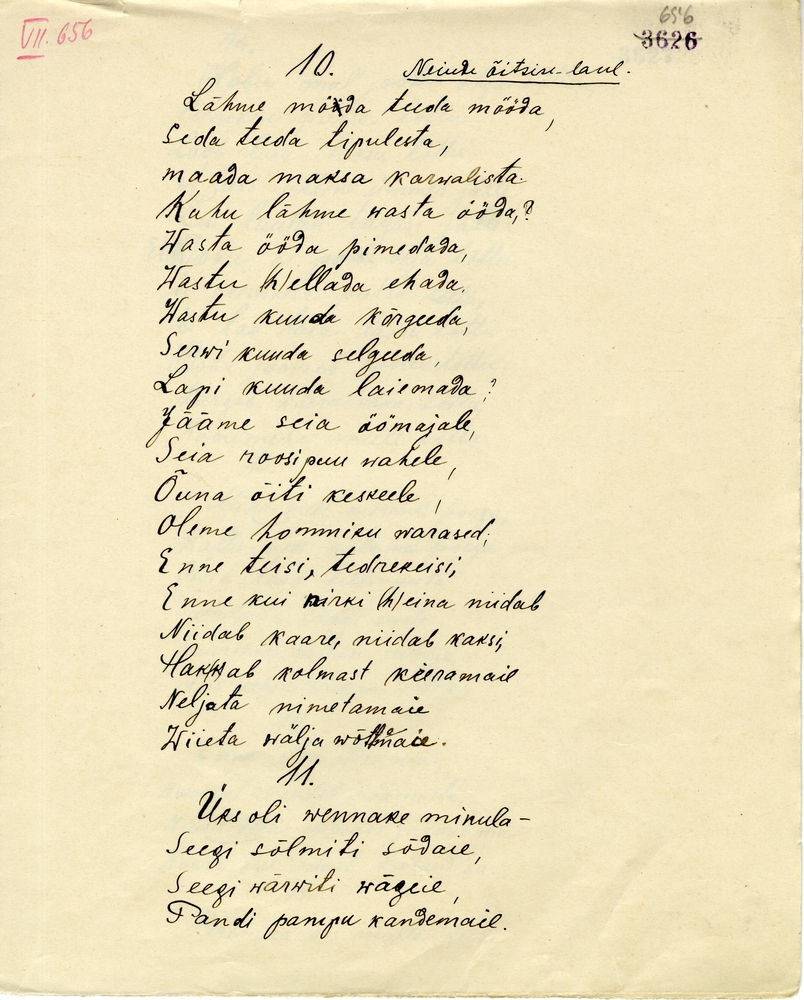 VII. 656
656
3626
10. Neiude õitsise-laul.
Lähme mööda teeda mööda,
Seda teeda tipulesta,
maada maksa karwalista.
Kuhu lähme wasta ööda,?
Wasta ööda pimedada,
Wastu (h)ellada ehada,
Wastu kuuda kõrgeeda,
Serwi kuuda selgeeda,
Lapi kuuda laiemada?
Jääme seia öömajale,
Seia roosipuu wahele,
Õuna õiti keskeele,
Oleme hommiku warased,
Enne teisi, tedrekeisi,
Enne kui kirki (h)eina niidab
Niidab kaare, niidab kaksi,
Hak(k)ab kolmast keeramaie
Neljata nimetamaie
Wiieta wälja wõtmaie.
11.
Üks oli wennake minula-
Seegi sõlmiti sõdaie,
Seegi wärwiti wägeie,
Pandi pampu kandemaie.